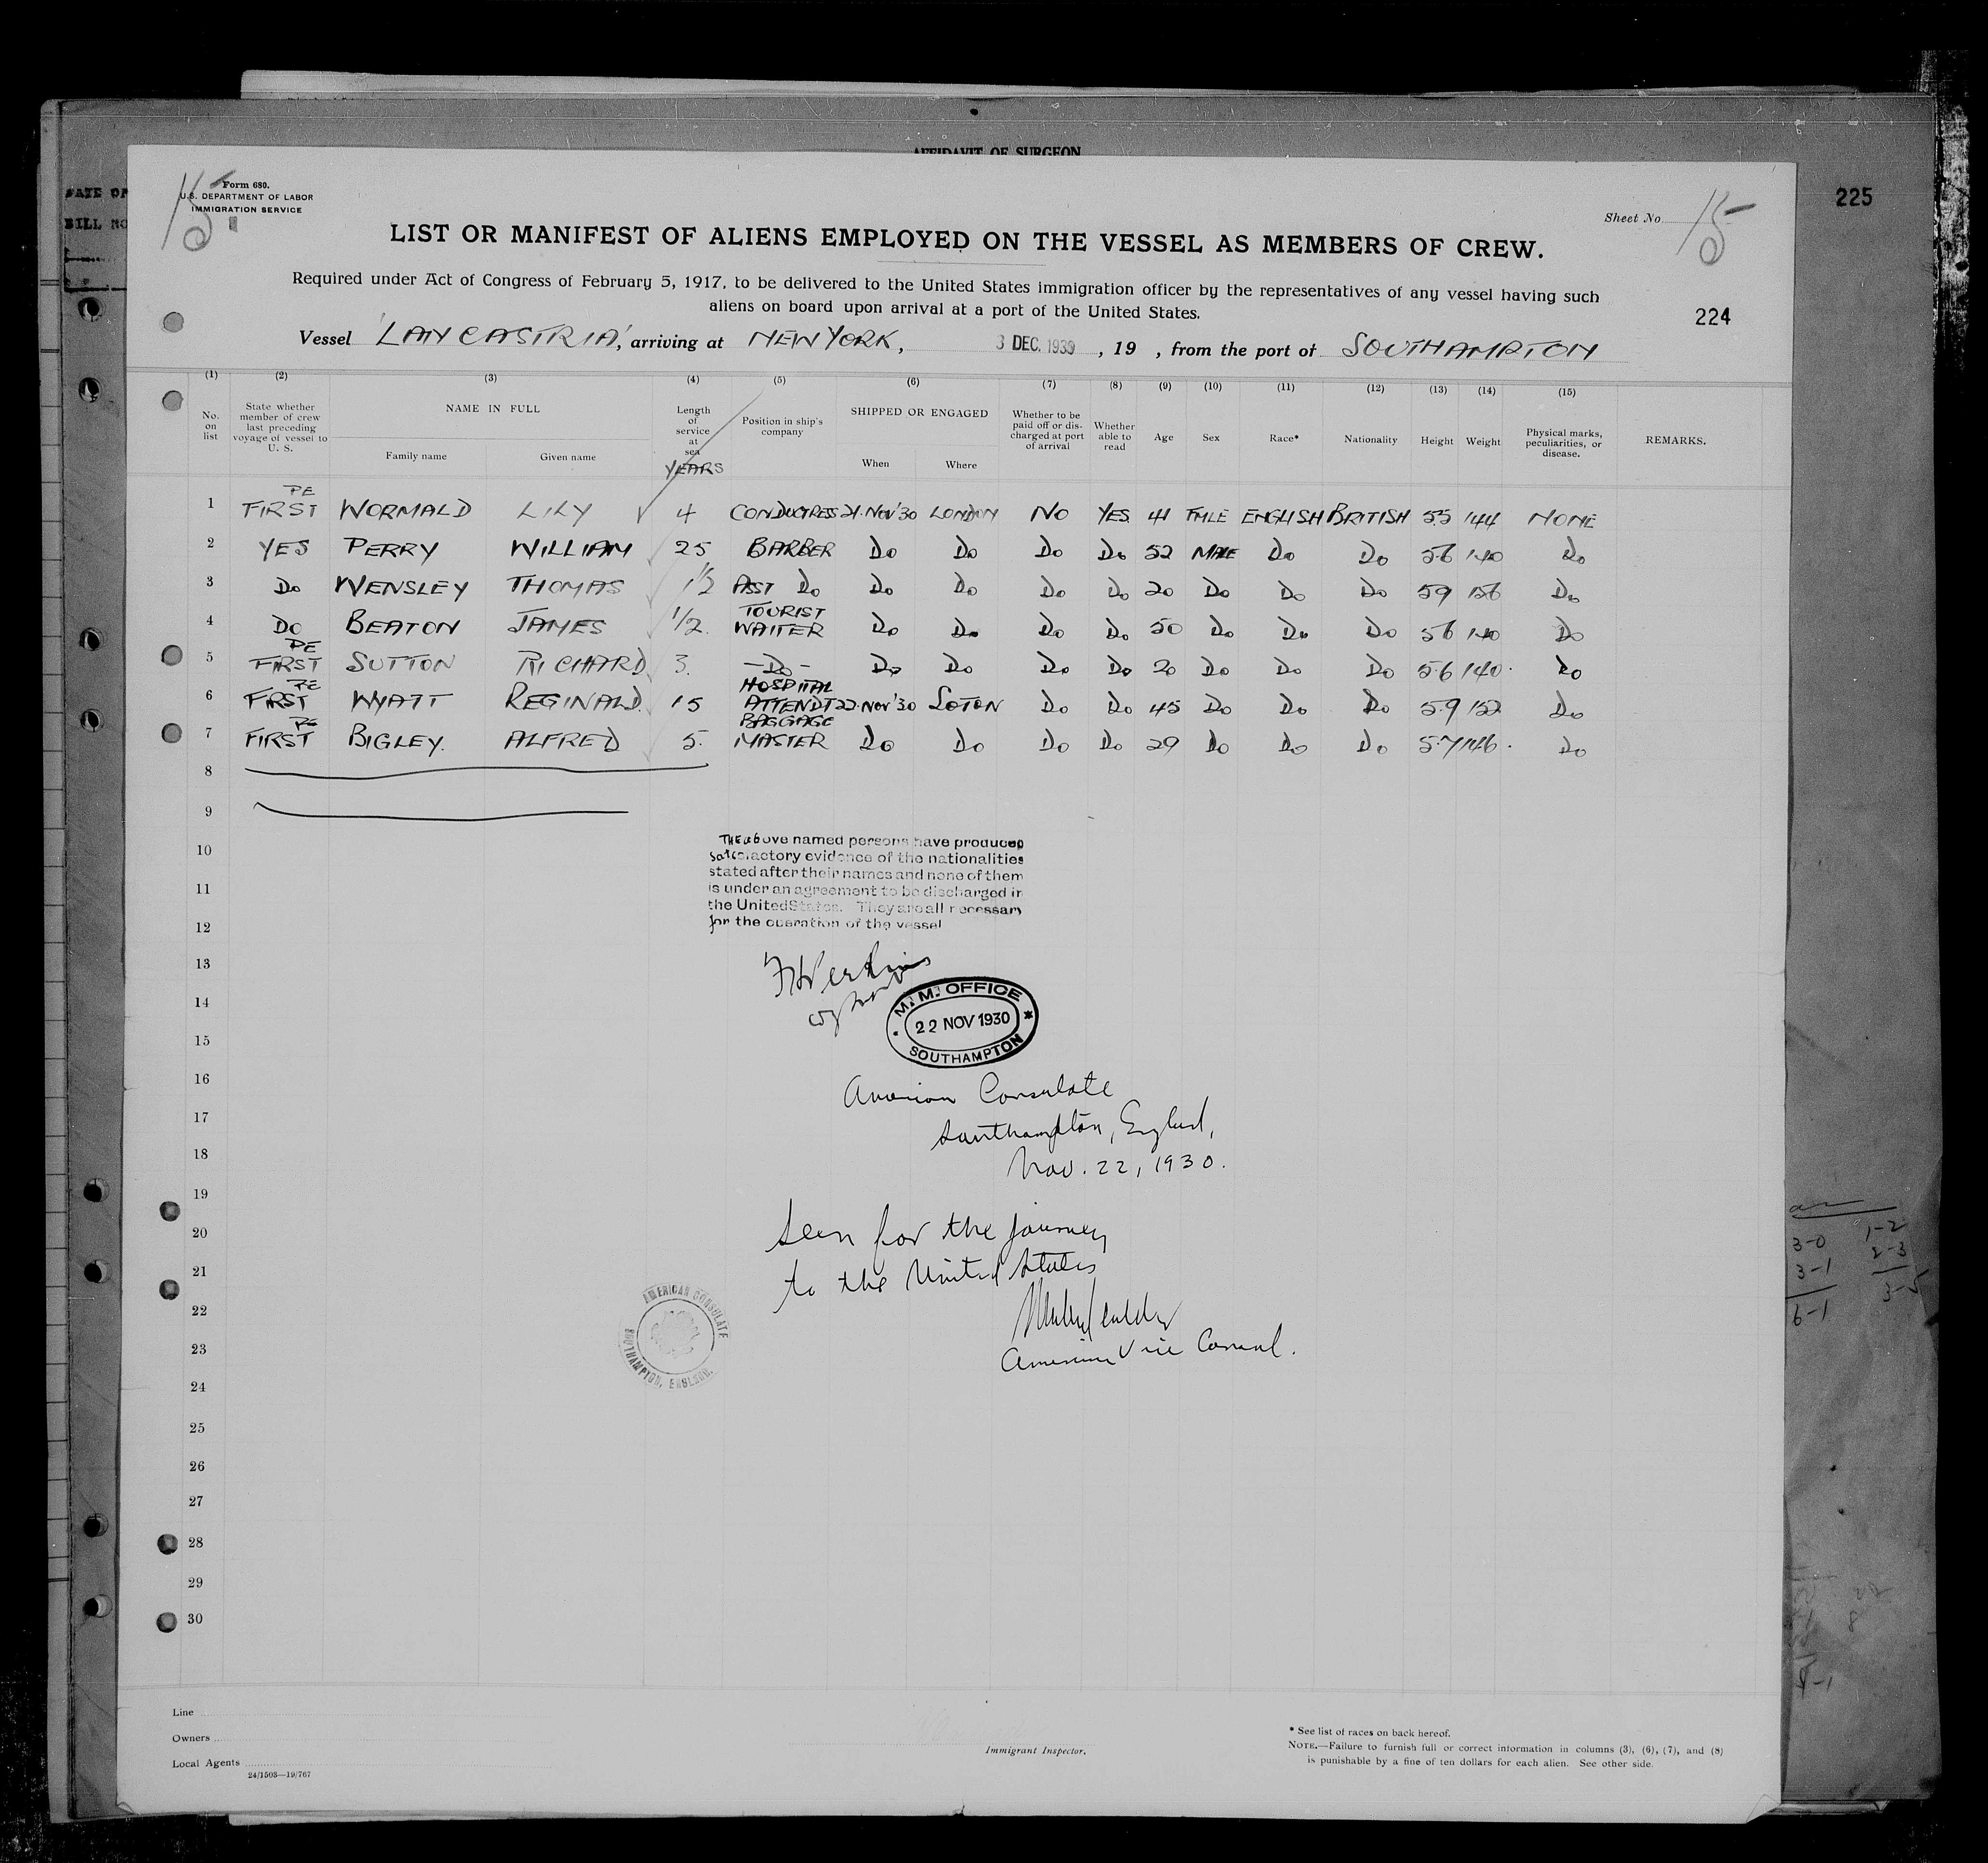 AFFIDAVIT OF SURGEON
225
Form 680.
U.S. DEPARTMENT OF LABOR
IMMIGRATION SERVICE
15
Sheet No. 15
LIST OR MANIFEST OF ALIENS EMPLOYED ON THE VESSEL AS MEMBERS OF CREW.
Required under Act of Congress of February 5, 1917, to be delivered to the United States immigration officer by the representatives of any vessel having such
aliens on board upon arrival at a port of the United States.
224
Vessel 'LANCASTRIA', arriving at NEW YORK, 3 DEC. 1930, 19 , from the port of SOUTHAMPTON
(1) (2) (3) (4) (5) (6) (7) (8) (9) (10) (11) (12) (13) (14) (15)
No. on list
State whether member of crew last preceding voyage of vessel to U. S.
NAME IN FULL
Family name
Given name
Length of service at sea
YEARS
Position in ship's company
SHIPPED OR ENGAGED
When
Where
Whether to be paid off or discharged at port of arrival
Whether able to read
Age
Sex
Race*
Nationality
Height
Weight
Physical marks, peculiarities, or disease.
REMARKS.
1 RE FIRST WORMALD LILY 4 CONDUCTRESS 21.NOV'30 LONDON NO YES 41 FMLE ENGLISH BRITISH 5.5 144 NONE
2 YES PERRY WILLIAM 25 BARBER Do Do Do Do 52 MALE Do Do 5.6 140 Do
3 Do WENSLEY THOMAS 1½ ASST Do Do Do Do Do 20 Do Do Do 5.9 156 Do
4 DO BEATON JAMES 1/2 TOURIST WAITER Do Do Do Do 50 Do Do Do 5.6 140 Do
5 RE FIRST SUTTON RICHARD 3. -Do- Do Do Do Do 20 Do Do Do 5.6 140. Do
6 RE FIRST WYATT REGINALD. 15 HOSPITAL ATTENDT 22.NOV'30 SOTON Do Do 45 Do Do Do 5.9 152 Do
7 RE FIRST BIGLEY. ALFRED 5. BAGGAGE MASTER Do Do Do Do 29 Do Do Do 5.7 146. Do
8
9
10
11
12
13
14
15
16
17
18
19
20
21
22
23
24
25
26
27
28
29
30
THE above named persons have produced
satisfactory evidence of the nationalities
stated after their names and none of them
is under an agreement to be discharged in
the United States. They are all necessary
for the operation of the vessel
M. M. OFFICE
22 NOV 1930
SOUTHAMPTON
American Consulate
Southampton, England,
Nov. 22, 1930.
Seen for the journey
to the United States
American Vice Consul.
AMERICAN CONSULATE
SOUTHAMPTON, ENGLAND.
3-0 1-2
3-1 2-3
6-1 3-5
Line
Owners
Local Agents
24/1503—19/767
Immigrant Inspector.
* See list of races on back hereof.
NOTE.—Failure to furnish full or correct information in columns (3), (6), (7), and (8)
is punishable by a fine of ten dollars for each alien. See other side.